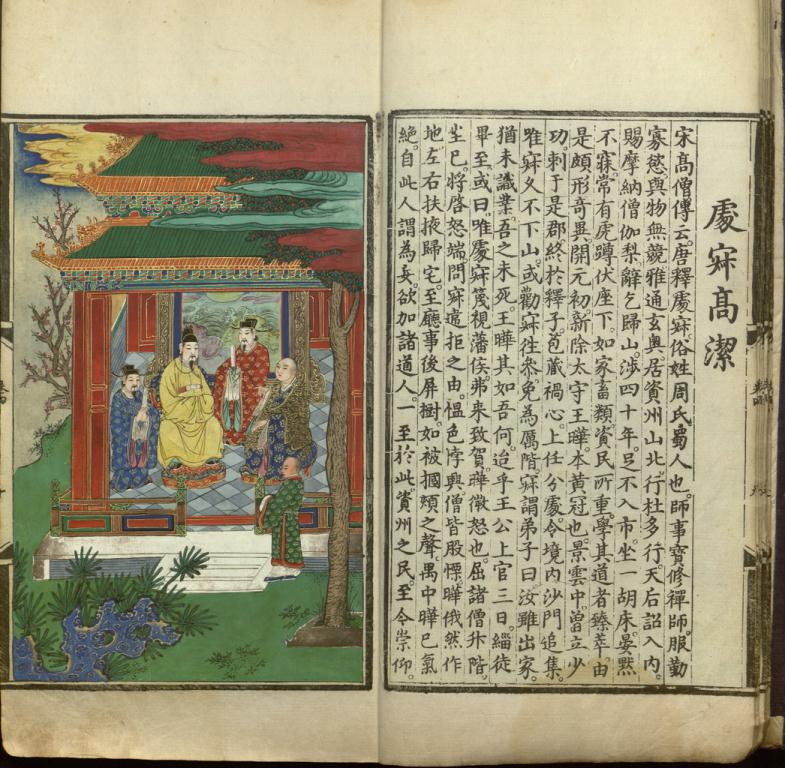 處寂高潔
宋高僧傳云。唐釋處寂。俗姓周氏。蜀人也。師事寶修禪師。服勤
寡慾。與物無競。雅通玄奧。居資州山北。行杜多行。天后詔入內。
賜摩納僧伽梨。辭乞歸山。涉四十年。足不入市。坐一胡床。宴默
不寐。常有虎蹲伏座下。如家畜類。資民所重。學其道者臻萃。由
是頗形奇異。開元初。新除太守王曄。本黃冠也。景雲中。曾立少
功。刺于是郡。終於釋子。苞藏禍心。上任分處。令境內沙門追集。
唯寂久不下山。或勸寂往參。免為厲階。寂謂弟子曰。汝雖出家。
猶未識業。吾之未死。王曄其如吾何。迨乎王公上官三日。緇徒
畢至。或曰。唯處寂蔑視藩侯。弗來致賀。曄微怒也。屈諸僧升階。
坐已。將啓怒端。問寂違拒之由。慍色悖興。僧皆股慄。曄俄然作
地。左右扶掖歸宅。至廳事後屏樹。如被摑頰之聲。禺中曄已氣
絕。自此人謂為妄。欲加諸道人。一至於此。資州之民。至今崇仰。